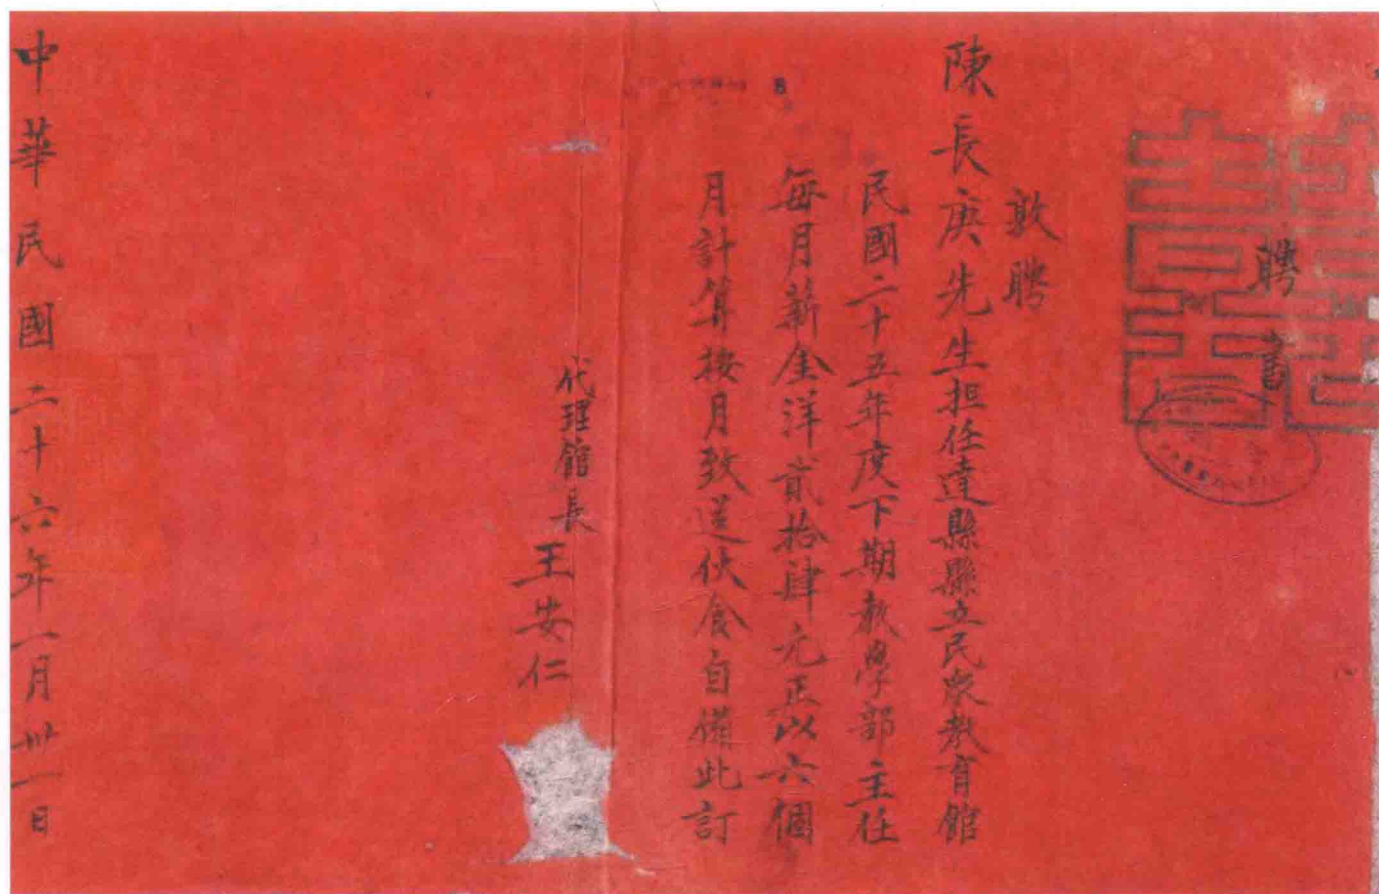 聘書
敦聘
陳長庚先生担任達縣縣立民衆教育館
民國二十五年度下期教學部主任
每月薪金洋貳拾肆元正以六個
月計算按月致送伙食自備此訂
代理館長
王安仁
中華民國二十六年一月卅一日